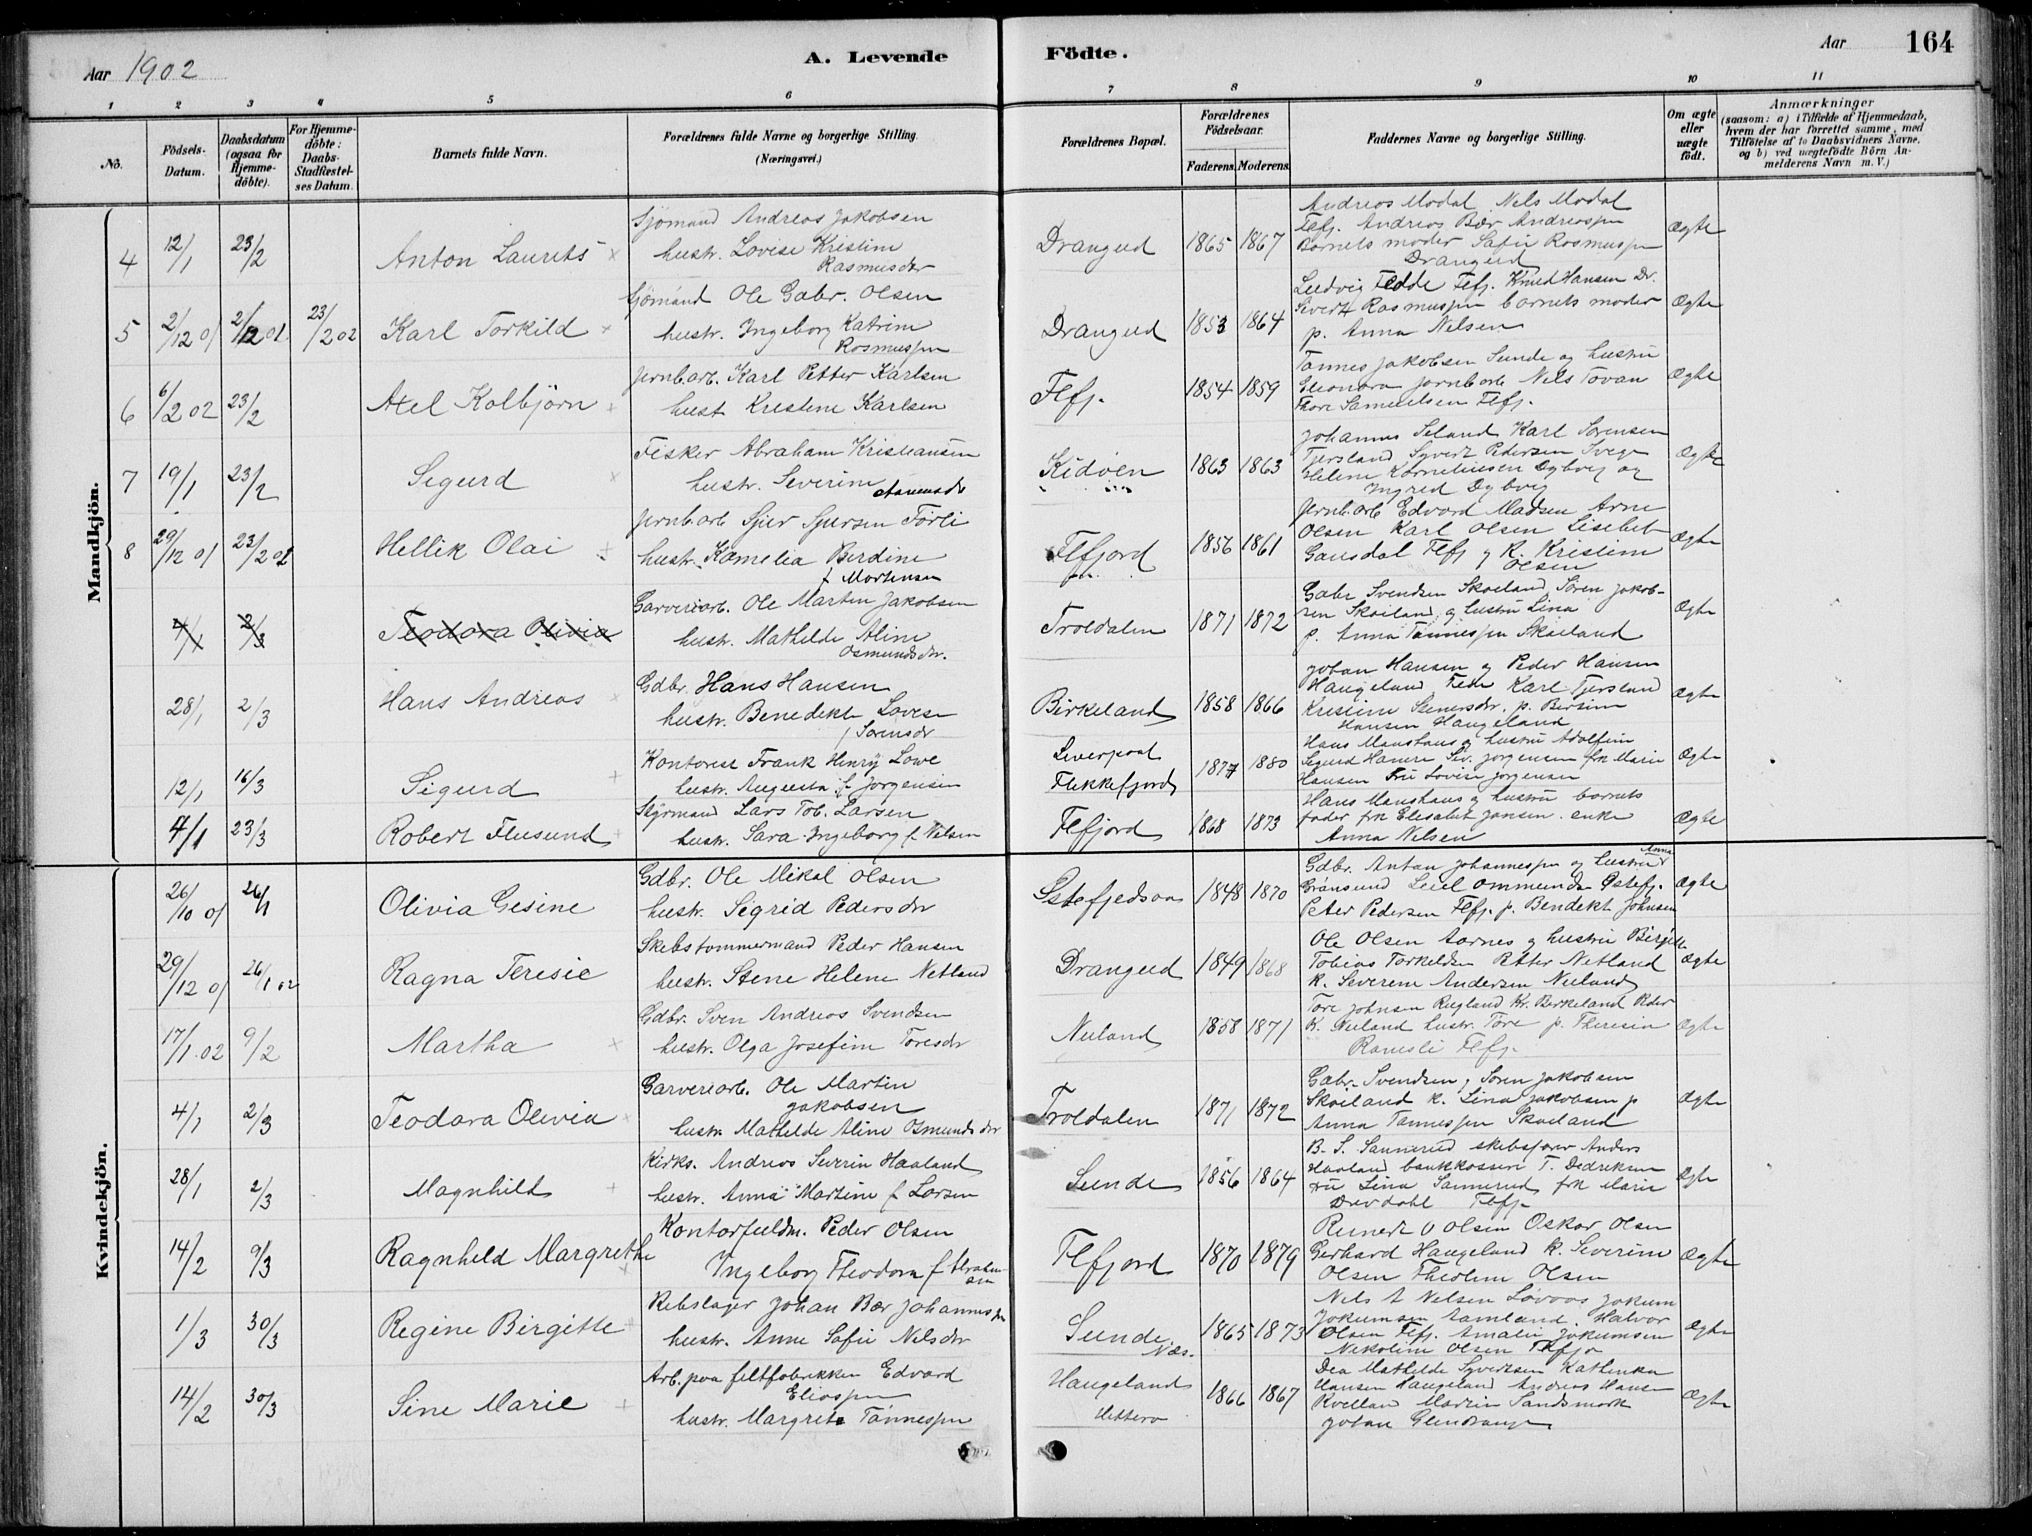 Aar 1902
A. Levende
Födte.
Aar
164
1 2 3 4 5 6 7 8 9 10 11
Nö.
Födsels-Datum.
Daabsdatum (ogsaa for Hjemme-döbte).
For Hjemme-döbte: Daabs-Stadfæstel-ses Datum.
Barnets fulde Navn.
Forældrenes fulde Navne og borgerlige Stilling. (Næringsvei.)
Forældrenes Bopæl.
Forældrenes Födselsaar.
Faderens. Moderens.
Faddernes Navne og borgerlige Stilling.
Om ægte eller uægte födt.
Anmærkninger
(saasom: a) i Tilfælde af Hjemmedaab, hvem der har forrettet samme, med Tilföielse af to Daabsvidners Navne, og b) ved uægtefödte Börn An-melderens Navn m. V.)
Mandkjön.
4 12/1 23/2 Anton Laurits
Sjømand Andreas Jakobsen
hustr. Lovise Kristine
Rasmusdtr
Drangeid 1865 1867
Andreas Modal Nels Modal
Flfj. Andreas Bær Andreassen
Barnets moder Safie Rasmussen
Drangeid
Ægte
5 2/12 01 2/12 01 23/2 02 Karl Torkild
Sjömand Ole Gabr. Olsen
hustr. Ingeborg Katrine
Rasmussen
Drangeid 1853 1864
Ludvig Fedde Flfj. Knud Hansen Dr.
Sivert Rasmussen barnets moder
p. Anna Nelsen
Ægte
6 6/2 02 23/2 Axel Kolbjörn
Jernb.arb. Karl Petter Karlsen
hust Kristine Karlsen
Flfj. 1854 1859
Tønnes Jakobsen Sunde og hustru
Eleonora Jernbarb Nels Tovan
Thore Samuelsen Flfj.
Ægte
7 19/1 23/2 Sigurd
Fisker Abraham Kristiansen
hustr. Severine
Kidøen 1863 1863
Johannes Seland Karl Sørensen
Tjersland Syvert Pedersen Svege
Helene Korneliussen Dybvig og
Ingred Dybvig
Ægte
8 29/12 01 23/2 02 Hellik Olai
Jernb.arb Sjur Sjursen Førli
hustr. Kornelia Berdine
f Mortensen
Flfjord 1856 1861
Jernb.arb Edvard Madsen Arne
Olsen Karl Olsen Lisebet
Gausdal Flfj og K. Kristine
Olsen
Ægte
4/1 2/3 Teodora Olivia
Garveriarb. Ole Martin Jakobsen
hustr. Mathilde Aline
Osmundsdtr.
Troldalen 1871 1872
Gabr Svendsen Skoeland Søren Jakob-
sen Skoiland og hustru Lina
p. Anna Tønnessen Skoeland
Ægte
28/1 2/3 Hans Andreas
Gdbr. Hans Hansen
hustr. Benedikte Lovise
Sørensdtr
Birkeland 1858 1866
Johan Hansen og Peder Hansen
Haugeland Flfj Karl Tjersland
Kristine Stenersdtr. p. Bertine
Hansen Haugeland
Ægte
12/1 16/3 Sigurd
Kontorist Frank Henry Lowe
hustr. Augusta f Jørgensen
Liverpool
Flekkefjord 1877 1880
Hans Manshaus og hustru Adolfine
Sigurd Hamre Siv. Jorgensen frk Marie
Hansen Fru Lovise Jorgensen
Ægte
4/1 23/3 Robert Flusund
Styrmand Lars Tob. Larsen
hustr. Sara Ingeborg f. Nelsen
Flfjord 1868 1873
Hans Manshaus og hustru barnets
fader frk Elisabet Jansen. enke
Anna Nelsen
Ægte
Kvindekjön.
26/10 01 26/1 Olivia Gesine
Gdbr. Ole Mikal Olsen
hustr. Sigrid Pedersdtr
1848 1870
Gdbr. Anton Johannessen og hustru Anna
Grønsund Leiel Ommunds Østefj.
Peter Pedersen Flfj. p. Bendekt Johnsen
Ægte
29/12 01 26/1 02 Ragna Teresie
Skibstømmermand Peder Hansen
hustr. Stene Helene Netland
Drangeid 1849 1868
Ole Olsen Aarnes og hustru Birgitte
Tobias Torkeldsen Petter Netland
k. Severine Andersen Nuland
Ægte
17/1 02 9/2 Martha
Gdbr. Sven Andreas Svendsen
hustr. Olga Josefine Toresdtr
Nuland 1858 1871
Tore Johnsen Rugland Kr. Berkeland Peder
K. Nuland hustr. Tore p. Theresia
Ramsli Flfj.
Ægte
4/1 2/3 Teodora Olivia
Garveriarb. Ole Martin
Jakobsen
hustr Mathilde Aline Osmundsdtr
Troldalen 1871 1872
Gabr. Svendsen, Søren Jakobsen
Skoiland k. Lina Jakobsen p
Anna Tønnessen Skoeland
Ægte
28/1 2/3 Magnhild
Kirks. Andreas Severin Haaland
hustr. Anna Martine f Larsen
Sunde 1856 1864
B. S. Sannerud skibsfører Anders
Haaland bankkasserer T. Dedriksen
fru Lina Sannerud frk Marie
Drivdahl Flfj
Ægte
14/2 9/3 Ragnhild Margrethe
Kontorfuldm. Peder Olsen
Ingeborg Theodora f Abraham-
sen
Flfjord 1870 1879
Reinert O Olsen Oskar Olsen
Gerhard Haugeland k. Severine
Olsen Theoline Olsen
Ægte
1/3 30/3 Regine Birgitte
Rebslager Johan Bær Johannessen
hustr. Anne Safie Nelsdtr
Sunde
Næs. 1865 1873
Nels A Nelsen Løvaas Jokum
Jokumsen Aamland. Halvor
Olsen Flfj. Amalie Jokumsen
Nikoline Olsen Flfj
Ægte
14/2 30/3 Sine Marie
Arb. paa filtfabrikken Edvard
Eliassen
hustr. Margrete Tønnessen
Haugeland
Hittero 1866 1867
Dea Mathilde Syvertsen Kathinka
Hansen Haugeland Andreas Hansen
Kvellan Martin Sandsmark
Johan
Ægte